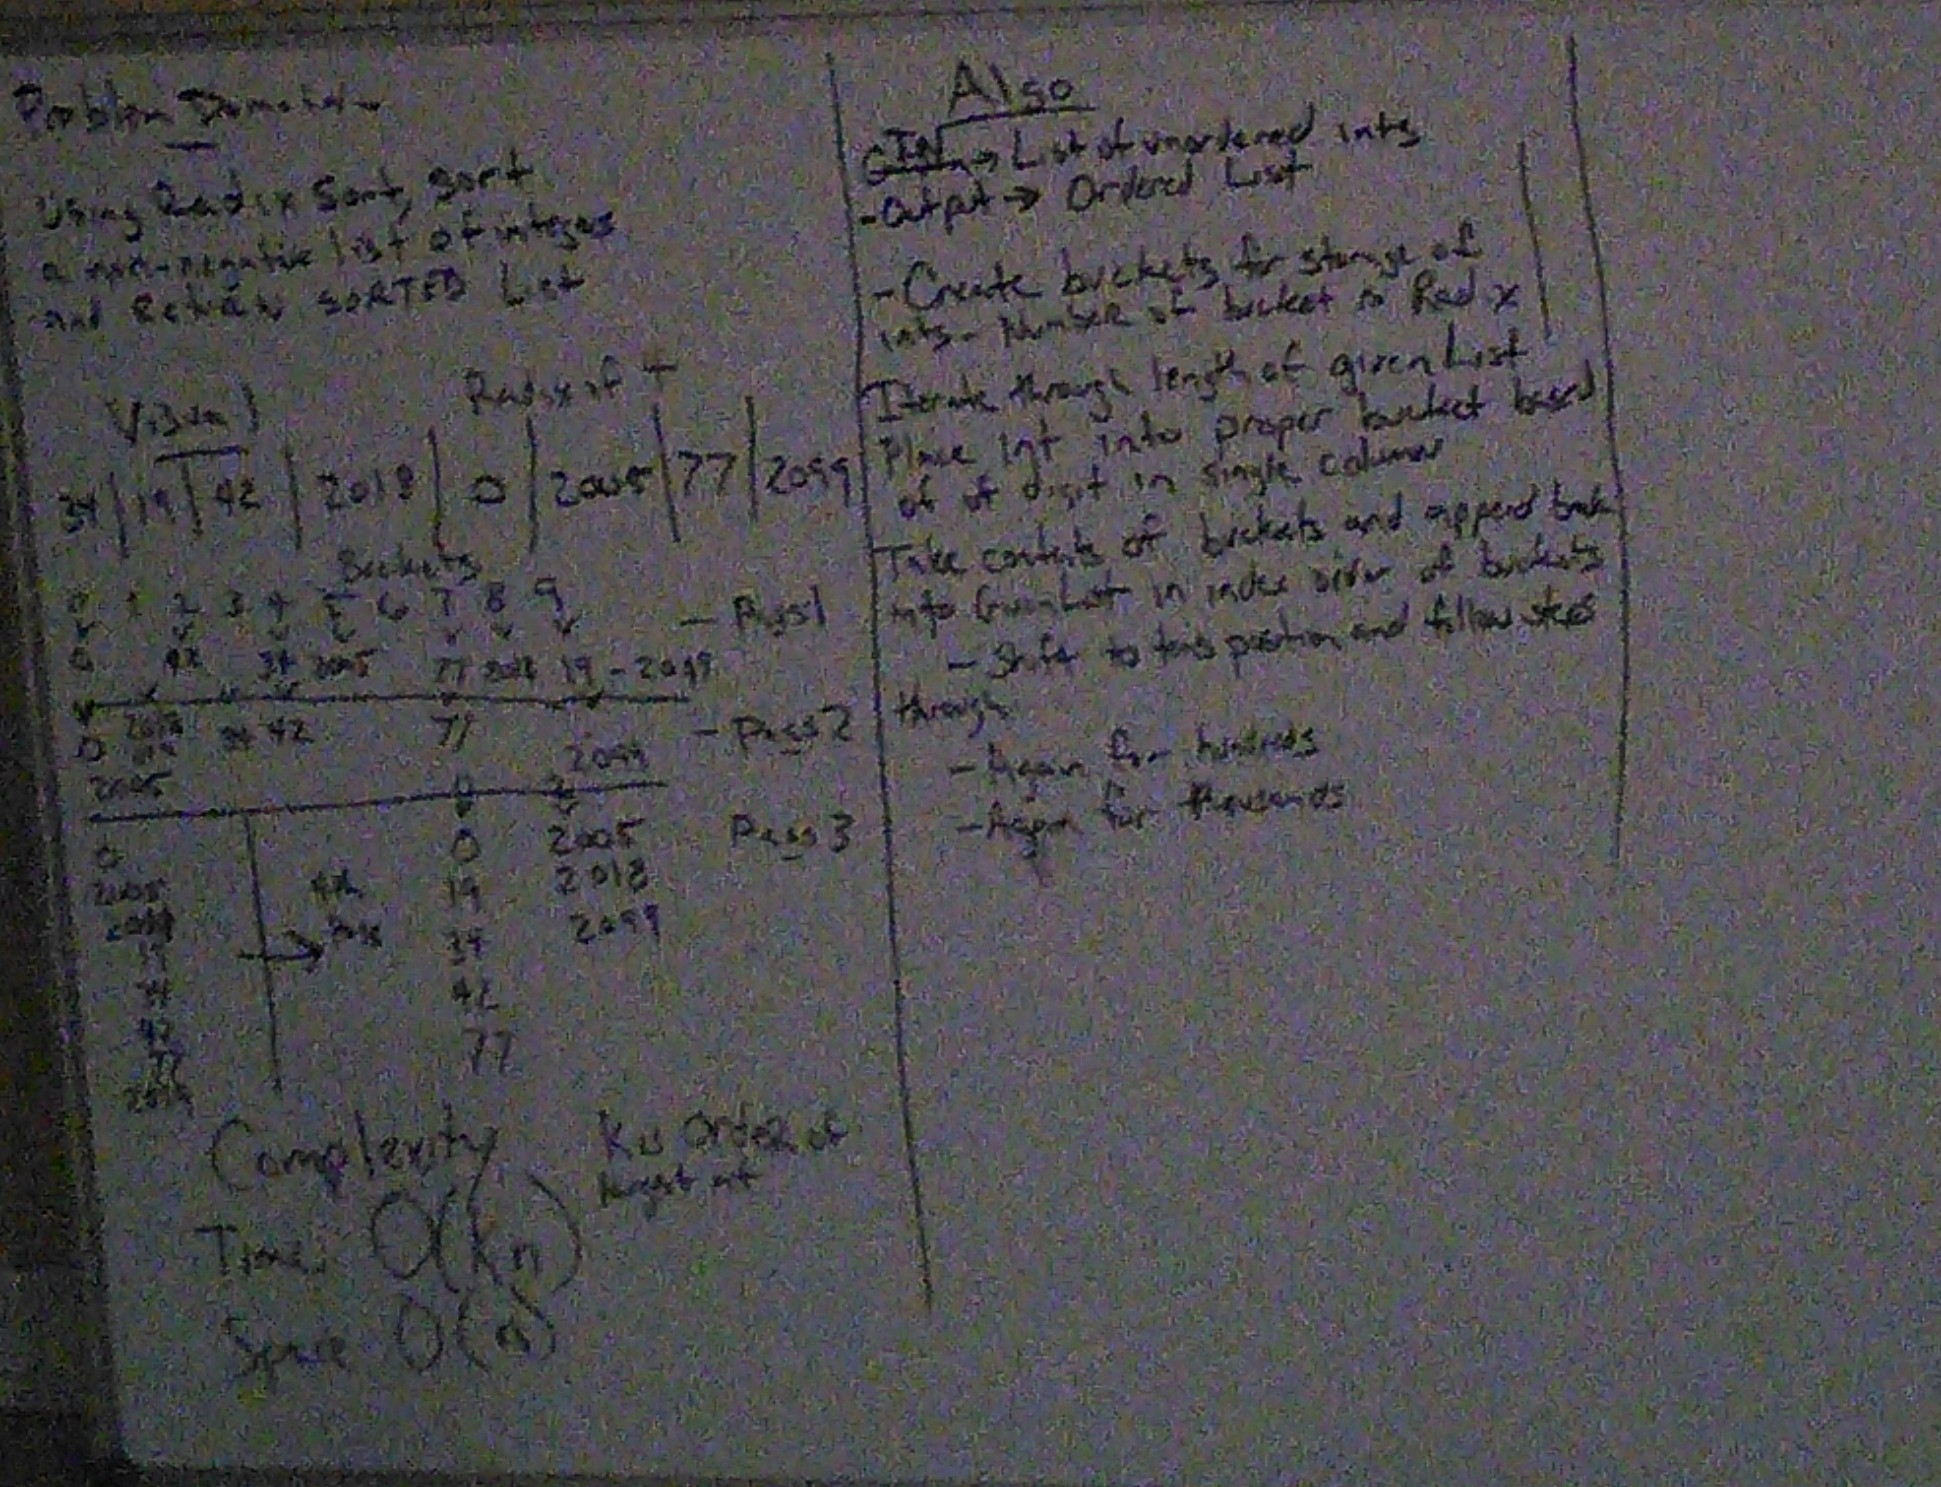 Problem Domain
Using Radix Sort, sort
a non-negative list of integers
and Return SORTED List
Visual
Radix of 4
34 | 19 | 42 | 2018 | 0 | 2005 | 77 | 2099
Buckets
0 1 2 3 4 5 6 7 8 9
- Pass 1
0 42 34 2005 77 2018 19 - 2099
0 2018 34 42 77
- Pass 2
19
2099
2005
0 0 2005 Pass 3
2005 42 19 2018
34 2099
19
34 42
42
77 77
Complexity
K is Order of
largest
Time: O(kn)
Space O(n)
Algo
In → List of unordered ints
- Output → Ordered List
- Create buckets for storage of
ints - Number of bucket is Radix
Iterate through length of given List
Place Int into proper bucket based
of of digit in single column
Take contents of buckets and append back
into Given List in index order of buckets
- Shift to tens position and follow steps
through
- Again for hundreds
- Again for thousands